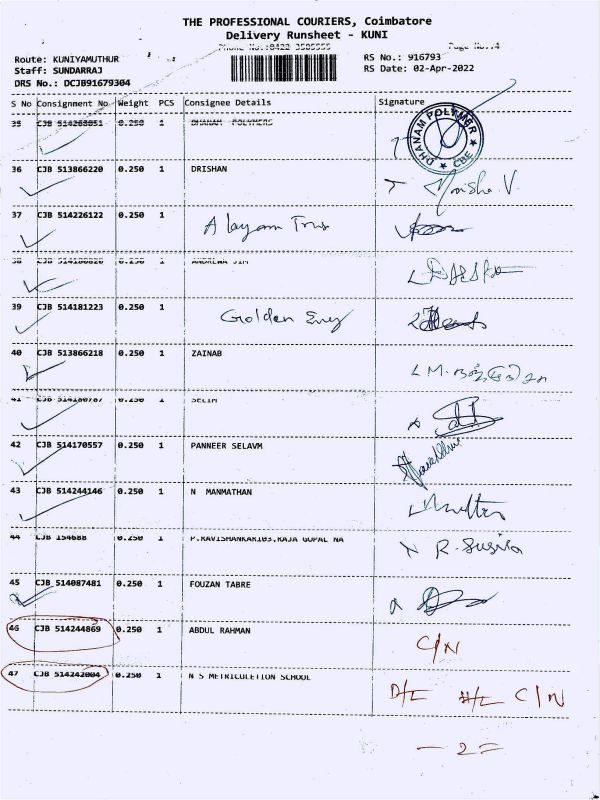 THE PROFESSIONAL COURIERS, Coimbatore
Delivery Runsheet - KUNI
Phone No.:0422 3505555 Page No.:4
Route: KUNIYAMUTHUR RS No.: 916793
Staff: SUNDARRAJ RS Date: 02-Apr-2022
DRS No.: DCJB91679304
S No Consignment No Weight PCS Consignee Details Signature
35 CJB 0.250 1 DHANAM POLYMERS DHANAM POLYMER CBE
36 CJB 513866220 0.250 1 DRISHAN Monisha V.
37 CJB 514226122 0.250 1 Alayam Trus
38 CJB 0.250 1 ANDREWA JIM
39 CJB 514181223 0.250 1 Golden Energy
40 CJB 513866218 0.250 1 ZAINAB
41 CJB 514180787 0.250 1 SELIM
42 CJB 514170557 0.250 1 PANNEER SELAVM
43 CJB 514244146 0.250 1 N MANMATHAN
44 CJB 154688 0.250 1 P.RAVISHANKAR103,RAJA GOPAL NA R. Susila
45 CJB 514087481 0.250 1 FOUZAN TABRE
46 CJB 514244869 0.250 1 ABDUL RAHMAN C/N
47 CJB 514242004 0.250 1 N S METRICULETION SCHOOL D/L C/N
— 2 =